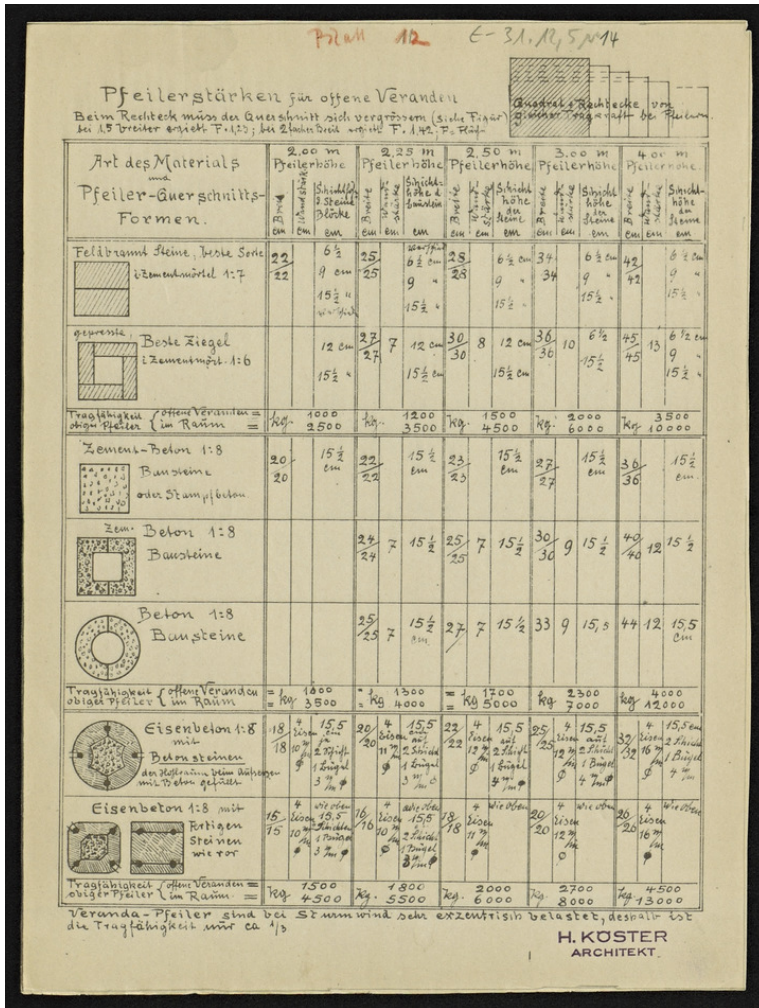 Blatt 12
E-31.12,5 N 14
Pfeilerstärken für offene Veranden
Beim Rechteck muss der Querschnitt sich vergrössern (siehe Figur)
bei 1,5 breiter ergiebt F. 1,23; bei 2 facher Breit ergiebt F. 1,42; F =
Quadrat & Rechtecke von
gleicher Tragkraft bei Pfeilern.
Art des Materials
und
Pfeiler-Querschnitts-
Formen.
2,00 m Pfeilerhöhe
2,25 m Pfeilerhöhe
2,50 m Pfeilerhöhe
3.00 m Pfeilerhöhe
4 00 m Pfeilerhöhe
Breite cm Wandstärke cm Blöcke cm
Breite cm Wandstärke cm Schichthöhe d Bausteine cm
Breite cm Stärke cm Schichthöhe der Steine cm
Breite cm Stärke cm Schichthöhe der Steine cm
Breite cm Stärke cm Schichthöhe der Steine cm
Feldbrannt Steine, beste Sorte
i Zementmörtel 1:7
22/22 6 ½ 9 cm 15 ½ "
25/25 6 ½ cm 9 " 15 ½ cm
28/28 6 ½ cm 9 " 15 ½ "
34/34 6 ½ cm 9 " 15 ½ "
42/42 6 ½ cm 9 " 15 ½ "
gepresste,
Beste Ziegel
i Zementmört. 1:6
12 cm 15 ½ "
27/27 7 12 cm 15 ½ cm
30/30 8 12 cm 15 ½ cm
36/36 10 6 ½ 15 ½
45/45 13 6 ½ cm 9 " 15 ½ "
Tragfähigkeit { offene Veranden =
obiger Pfeiler { im Raum =
kg. 1000 2500
kg. 1200 3500
kg. 1500 4500
kg. 2000 6000
kg 3500 10000
Zement-Beton 1:8
Bausteine
oder Stampfbeton.
20/20 15 ½ cm
22/22 15 ½ cm
23/23 15 ½ cm
27/27 15 ½ cm
36/36 15 ½ cm.
Zem. Beton 1:8
Bausteine
24/24 7 15 ½
25/25 7 15 ½
30/30 9 15 ½
40/40 12 15 ½
Beton 1:8
Bausteine
25/25 7 15 ½ cm.
27/ 7 15 ½
33 9 15,5
44 12 15,5 cm
Tragfähigkeit { offene Veranden
obiger Pfeiler { im Raum
= kg 3500
= kg 1300 4000
= kg 1700 5000
kg 2300 7000
kg 4000 12000
Eisenbeton 1:8
mit
Betonsteinen
der Hohlraum beim Aufsetzen
mit Beton gefüllt
18/18 4 Eisen 10 m/m φ 15,5 cm 2 Schicht 1 Bügel 3 m/m φ
20/20 4 Eisen 11 m/m φ 15,5 auf 2 Schicht 1 Bügel 3 m/m φ
22/22 4 Eisen 12 m/m φ 15,5 auf 2 Schicht 1 Bügel m/m φ
25/25 4 Eisen 12 m/m φ 15,5 auf 2 Schicht 1 Bügel 4 m/m φ
32/32 4 Eisen 16 m/m φ 15,5 cm 2 Schicht 1 Bügel 4 m/m
Eisenbeton 1:8 mit
Fertigen
Steinen
wie vor
15/15 4 Eisen 10 m/m φ wie oben 15,5 2 Schichten 1 Bügel 3 m/m φ
16/16 4 Eisen 10 m/m φ wie oben 15,5 2 Schicht 1 Bügel 3 m/m φ
18/18 4 Eisen 11 m/m φ wie oben
20/20 4 Eisen 12 m/m φ wie oben
26/26 4 Eisen 16 m/m φ wie oben
Tragfähigkeit { offene Veranden =
obiger Pfeiler { im Raum. =
kg 1500 4500
kg. 1800 5500
kg. 2000 6000
kg. 2700 8000
kg. 4500 13000
Veranda-Pfeiler sind bei Sturmwind sehr exzentrisch belastet, deshalb ist
die Tragfähigkeit nur ca 1/3
H. KÖSTER
ARCHITEKT.